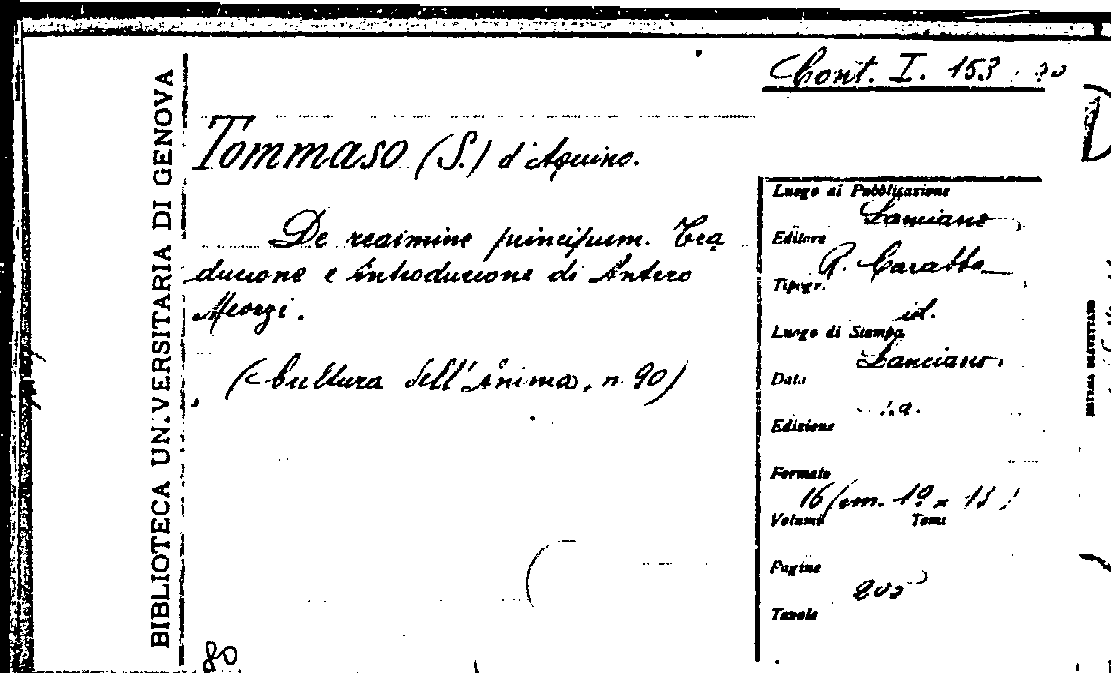 Cont. I. 153.
BIBLIOTECA UNIVERSITARIA DI GENOVA
Tommaso (S.) d'Aquino.
De regimine principum. Tra
duzione e introduzione di Antero
Meozzi.
(Cultura dell'Anima, n 90)
Luogo di Pubblicazione
Lanciano
Editore
R. Carabba
Tipogr.
id.
Luogo di Stampa
Lanciano.
Data
s.a.
Edizione
Formato
16 (cm. 19 x 13)
Volumi Tomi
Pagine
Tavole
80